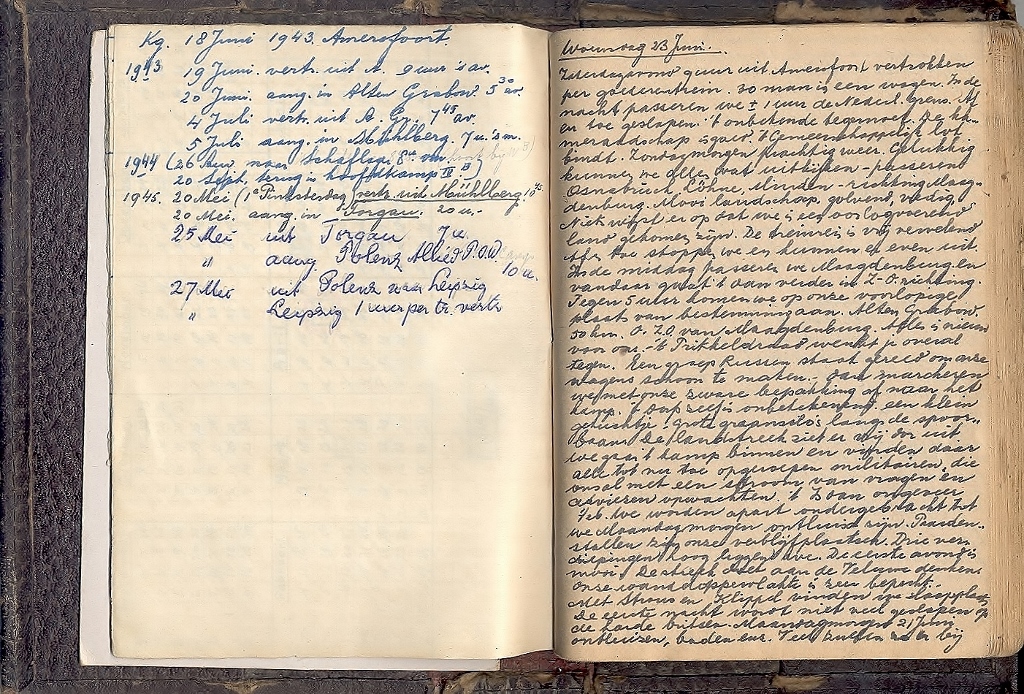 Kg. 18 Juni 1943. Amersfoort.
1943 19 Juni. vertr. uit A. 9 uur 's av.
20 Juni. aang. in Alten Grabow 5³⁰ av.
4 Juli vertr. uit A. Gr. 7⁴⁵ av.
5 Juli aang. in Mühlberg. 7 u. 's m.
1944 (26 Jan. naar
20 Sept. terug in hoofdkamp IV B)
1945. 20 Mei (1e Pinksterdag) vertr. uit Mühlberg. 10
20 Mei. aang. in Torgau. 20 u.
25 Mei uit Torgau 7 u.
" aang. Polenz Allied P.O.W.
10 u.
27 Mei uit Polenz naar Leipzig
" Leipzig 1 uur per tr. vertr.
Woensdag 23 Juni.
Zaterdagavond 9 uur uit Amersfoort vertrokken
per goederentrein. 30 man in een wagon. In de
nacht passeren we ± 1 uur de Nederl. grens. Af
en toe geslapen. 't onbekende tegemoet. De ka-
meraadschap is goed. 't Gemeenschappelijk lot
bindt. Zondagmorgen prachtig weer. Gelukkig
kunnen we alles wat uitkijken - passeren
Osnabrück, Löhne, Minden - richting Maag-
denburg. Mooi landschap, golvend, vredig
Niets wijst er op dat we in een oorlogvoerend
land gekomen zijn. De treinreis is vrij vervelend
Af en toe stoppen we en kunnen er even uit.
In de middag passeren we Maagdenburg en
vandaar gaat 't dan verder in Z-O. richting.
Tegen 5 uur komen we op onze voorlopige
plaats van bestemming aan. Alten Grabow.
50 km. O. Z.O. van Maagdenburg. Alles is nieuw
voor ons. 't Prikkeldraad wenkt je overal
tegen. Een groep Russen staat gereed om onze
wagens schoon te maken. Dan marcheren
we met onze zware bepakking af naar het
kamp. 't dorp zelf is onbetekenend een klein
gehuchtje! Grote graansilo's langs de spoor-
baan. De landstreek ziet er vrij dor uit.
We gaan 't kamp binnen en vinden daar
alle tot nu toe opgeroepen militairen, die
ons al met een stroom van vragen en
adviezen opwachten. 't Zijn ongeveer
We worden apart ondergebracht tot
we Maandagmorgen ontluisd zijn. Paarden-
stallen zijn onze verblijfplaatsen. Drie ver-
diepingen hoog liggen we. De eerste avond is
mooi. De streek doet aan de Veluwe denken
onze is zeer beperkt.
Met Straus en Klippel vinden we slaapplaats
De eerste nacht wordt niet veel geslapen op
de harde britsen. Maandagmorgen 21 Juni
ontluizen, baden enz.